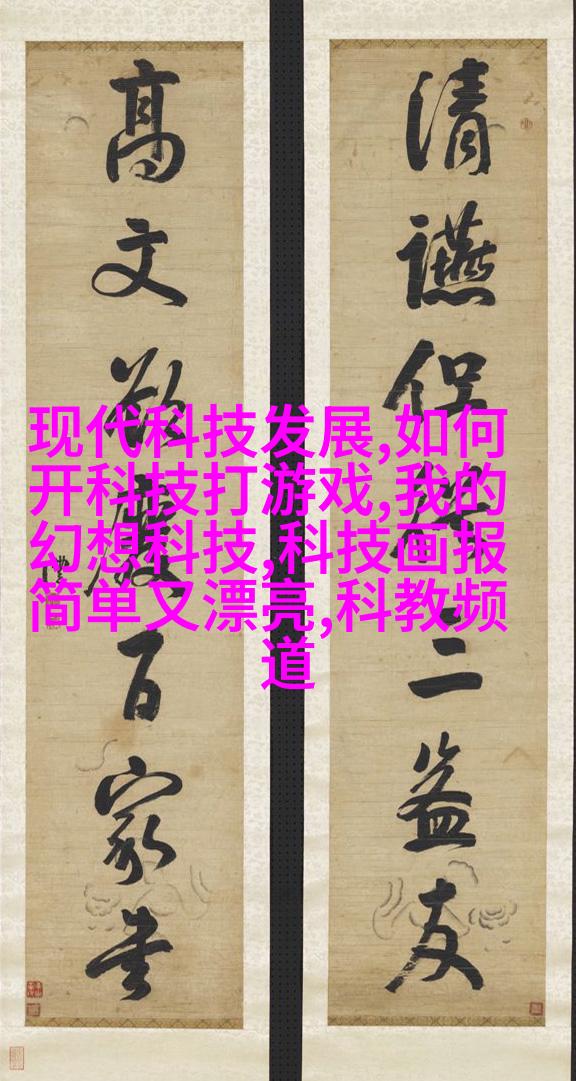 现代科技发展,如何
开科技打游戏,我的
幻想科技,科技画报
简单又漂亮,科教频
道
清讌三益友
高文百家書